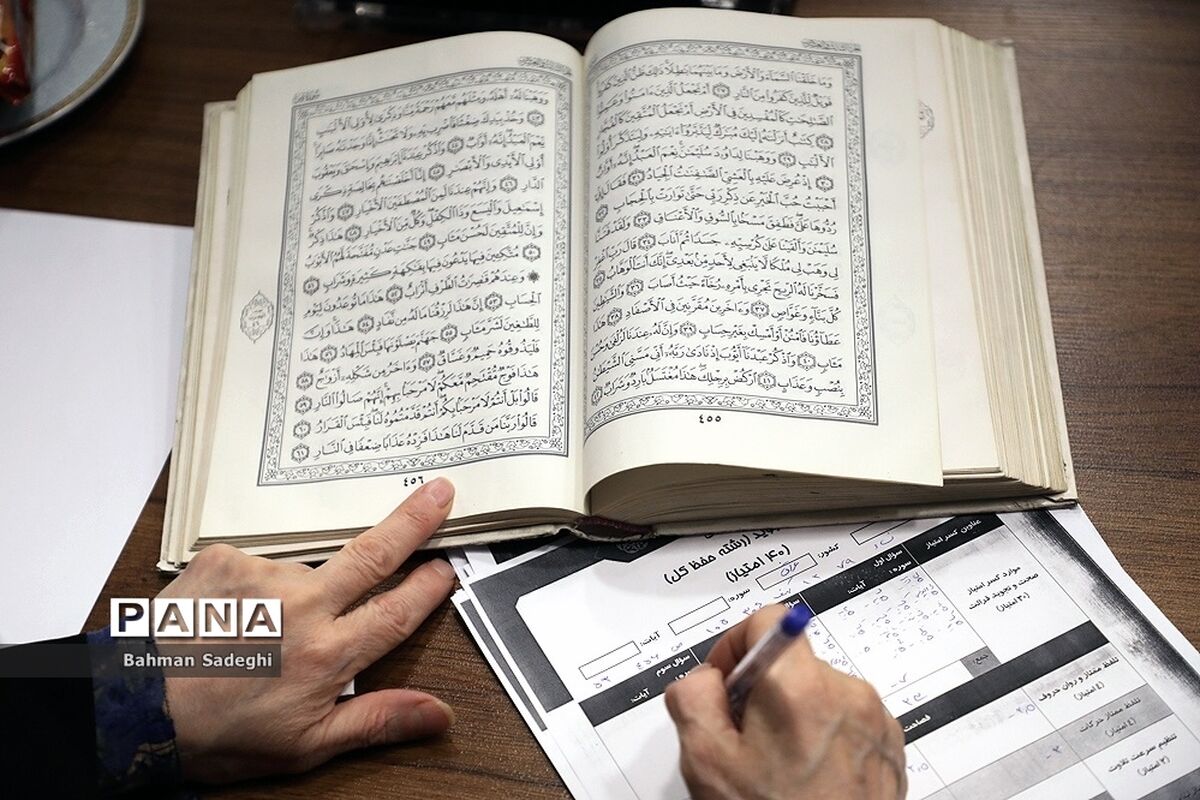 وَمَا خَلَقْنَا ٱلسَّمَآءَ وَٱلْأَرْضَ وَمَا بَيْنَهُمَا بَٰطِلًا ذَٰلِكَ ظَنُّ ٱلَّذِينَ كَفَرُوا۟
فَوَيْلٌ لِّلَّذِينَ كَفَرُوا۟ مِنَ ٱلنَّارِ ٢٧ أَمْ نَجْعَلُ ٱلَّذِينَ ءَامَنُوا۟ وَعَمِلُوا۟
ٱلصَّٰلِحَٰتِ كَٱلْمُفْسِدِينَ فِى ٱلْأَرْضِ أَمْ نَجْعَلُ ٱلْمُتَّقِينَ كَٱلْفُجَّارِ
٢٨ كِتَٰبٌ أَنزَلْنَٰهُ إِلَيْكَ مُبَٰرَكٌ لِّيَدَّبَّرُوٓا۟ ءَايَٰتِهِۦ وَلِيَتَذَكَّرَ أُو۟لُوا۟
ٱلْأَلْبَٰبِ ٢٩ وَوَهَبْنَا لِدَاوُۥدَ سُلَيْمَٰنَ نِعْمَ ٱلْعَبْدُ إِنَّهُۥٓ أَوَّابٌ
٣٠ إِذْ عُرِضَ عَلَيْهِ بِٱلْعَشِىِّ ٱلصَّٰفِنَٰتُ ٱلْجِيَادُ ٣١ فَقَالَ إِنِّىٓ
أَحْبَبْتُ حُبَّ ٱلْخَيْرِ عَن ذِكْرِ رَبِّى حَتَّىٰ تَوَارَتْ بِٱلْحِجَابِ ٣٢
رُدُّوهَا عَلَىَّ فَطَفِقَ مَسْحًۢا بِٱلسُّوقِ وَٱلْأَعْنَاقِ ٣٣ وَلَقَدْ فَتَنَّا
سُلَيْمَٰنَ وَأَلْقَيْنَا عَلَىٰ كُرْسِيِّهِۦ جَسَدًا ثُمَّ أَنَابَ ٣٤ قَالَ رَبِّ ٱغْفِرْ
لِى وَهَبْ لِى مُلْكًا لَّا يَنۢبَغِى لِأَحَدٍ مِّنۢ بَعْدِىٓ إِنَّكَ أَنتَ ٱلْوَهَّابُ ٣٥
فَسَخَّرْنَا لَهُ ٱلرِّيحَ تَجْرِى بِأَمْرِهِۦ رُخَآءً حَيْثُ أَصَابَ ٣٦ وَٱلشَّيَٰطِينَ
كُلَّ بَنَّآءٍ وَغَوَّاصٍ ٣٧ وَءَاخَرِينَ مُقَرَّنِينَ فِى ٱلْأَصْفَادِ ٣٨ هَٰذَا
عَطَآؤُنَا فَٱمْنُنْ أَوْ أَمْسِكْ بِغَيْرِ حِسَابٍ ٣٩ وَإِنَّ لَهُۥ عِندَنَا لَزُلْفَىٰ وَحُسْنَ
مَـَٔابٍ ٤٠ وَٱذْكُرْ عَبْدَنَآ أَيُّوبَ إِذْ نَادَىٰ رَبَّهُۥٓ أَنِّى مَسَّنِىَ ٱلشَّيْطَٰنُ
بِنُصْبٍ وَعَذَابٍ ٤١ ٱرْكُضْ بِرِجْلِكَ هَٰذَا مُغْتَسَلٌۢ بَارِدٌ وَشَرَابٌ ٤٢
٤٥٥
وَوَهَبْنَا لَهُۥٓ أَهْلَهُۥ وَمِثْلَهُم مَّعَهُمْ رَحْمَةً مِّنَّا وَذِكْرَىٰ لِأُو۟لِى ٱلْأَلْبَٰبِ
٤٣ وَخُذْ بِيَدِكَ ضِغْثًا فَٱضْرِب بِّهِۦ وَلَا تَحْنَثْ إِنَّا وَجَدْنَٰهُ صَابِرًا
نِّعْمَ ٱلْعَبْدُ إِنَّهُۥٓ أَوَّابٌ ٤٤ وَٱذْكُرْ عِبَٰدَنَآ إِبْرَٰهِيمَ وَإِسْحَٰقَ وَيَعْقُوبَ
أُو۟لِى ٱلْأَيْدِى وَٱلْأَبْصَٰرِ ٤٥ إِنَّآ أَخْلَصْنَٰهُم بِخَالِصَةٍ ذِكْرَى
ٱلدَّارِ ٤٦ وَإِنَّهُمْ عِندَنَا لَمِنَ ٱلْمُصْطَفَيْنَ ٱلْأَخْيَارِ ٤٧ وَٱذْكُرْ
إِسْمَٰعِيلَ وَٱلْيَسَعَ وَذَا ٱلْكِفْلِ وَكُلٌّ مِّنَ ٱلْأَخْيَارِ ٤٨ هَٰذَا ذِكْرٌ
وَإِنَّ لِلْمُتَّقِينَ لَحُسْنَ مَـَٔابٍ ٤٩ جَنَّٰتِ عَدْنٍ مُّفَتَّحَةً لَّهُمُ ٱلْأَبْوَٰبُ
٥٠ مُتَّكِـِٔينَ فِيهَا يَدْعُونَ فِيهَا بِفَٰكِهَةٍ كَثِيرَةٍ وَشَرَابٍ ٥١
۞ وَعِندَهُمْ قَٰصِرَٰتُ ٱلطَّرْفِ أَتْرَابٌ ٥٢ هَٰذَا مَا تُوعَدُونَ لِيَوْمِ
ٱلْحِسَابِ ٥٣ إِنَّ هَٰذَا لَرِزْقُنَا مَا لَهُۥ مِن نَّفَادٍ ٥٤ هَٰذَا وَإِنَّ
لِلطَّٰغِينَ لَشَرَّ مَـَٔابٍ ٥٥ جَهَنَّمَ يَصْلَوْنَهَا فَبِئْسَ ٱلْمِهَادُ ٥٦ هَٰذَا
فَلْيَذُوقُوهُ حَمِيمٌ وَغَسَّاقٌ ٥٧ وَءَاخَرُ مِن شَكْلِهِۦٓ أَزْوَٰجٌ ٥٨
هَٰذَا فَوْجٌ مُّقْتَحِمٌ مَّعَكُمْ لَا مَرْحَبًۢا بِهِمْ إِنَّهُمْ صَالُوا۟ ٱلنَّارِ ٥٩
قَالُوا۟ بَلْ أَنتُمْ لَا مَرْحَبًۢا بِكُمْ أَنتُمْ قَدَّمْتُمُوهُ لَنَا فَبِئْسَ ٱلْقَرَارُ ٦٠
قَالُوا۟ رَبَّنَا مَن قَدَّمَ لَنَا هَٰذَا فَزِدْهُ عَذَابًا ضِعْفًا فِى ٱلنَّارِ ٦١
٤٥٦
(رشته حفظ کل)
(۴۰ امتیاز)
کشور:
سوره:
آیات:
عناوین کسر امتیاز
سؤال اول
سوره:
آیات:
سؤال سوم
آیات:
موارد کسر امتیاز
صحت و تجوید قرائت
(۳۰ امتیاز)
جمع:
فصاحت
تلفظ ممتاز و روان حروف
(۴ امتیاز)
تلفظ ممتاز حرکات
(۴ امتیاز)
تنظیم سرعت تلاوت
(۲ امتیاز)
PANA
Bahman Sadeghi